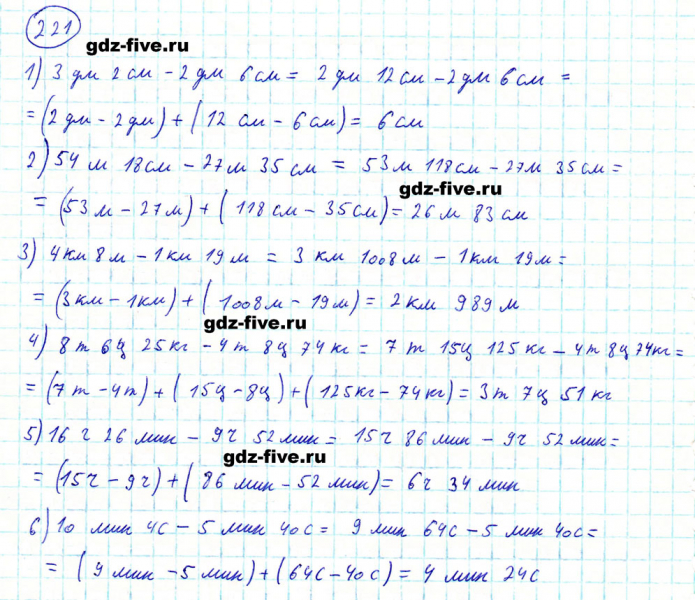 221
gdz-five.ru
1) 3 дм 2 см - 2 дм 6 см = 2 дм 12 см - 2 дм 6 см =
= (2 дм - 2 дм) + (12 см - 6 см) = 6 см
2) 54 м 18 см - 27 м 35 см = 53 м 118 см - 27 м 35 см =
gdz-five.ru
= (53 м - 27 м) + (118 см - 35 см) = 26 м 83 см
3) 4 км 8 м - 1 км 19 м = 3 км 1008 м - 1 км 19 м =
= (3 км - 1 км) + (1008 м - 19 м) = 2 км 989 м
gdz-five.ru
4) 8 т 6 ц 25 кг - 4 т 8 ц 74 кг = 7 т 15 ц 125 кг - 4 т 8 ц 74 кг =
= (7 т - 4 т) + (15 ц - 8 ц) + (125 кг - 74 кг) = 3 т 7 ц 51 кг
5) 16 ч 26 мин - 9 ч 52 мин = 15 ч 86 мин - 9 ч 52 мин =
gdz-five.ru
= (15 ч - 9 ч) + (86 мин - 52 мин) = 6 ч 34 мин
6) 10 мин 4 с - 5 мин 40 с = 9 мин 64 с - 5 мин 40 с =
= (9 мин - 5 мин) + (64 с - 40 с) = 4 мин 24 с